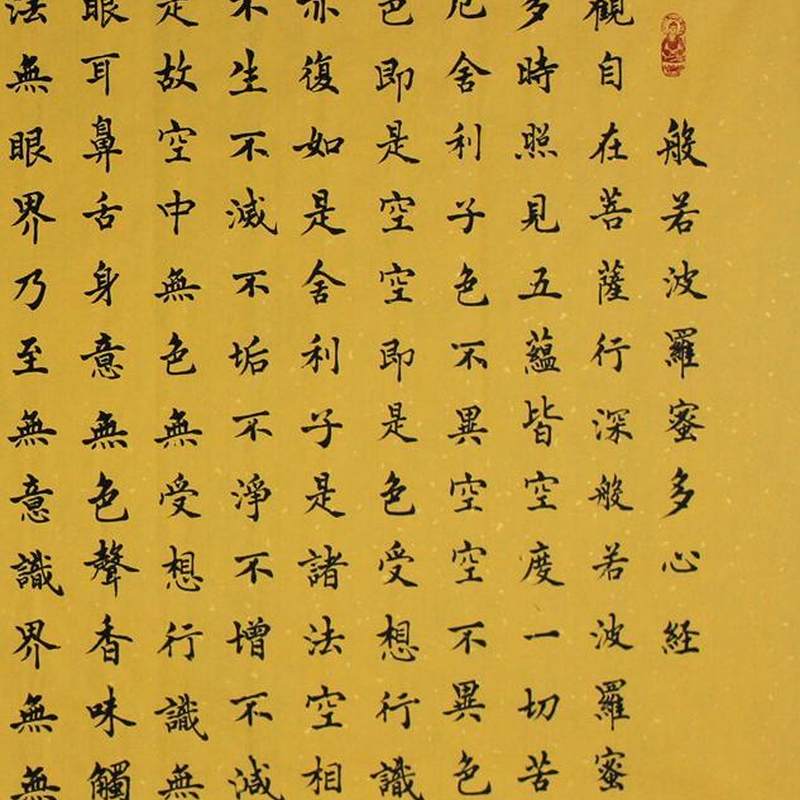 般若波羅蜜多心経
觀自在菩薩行深般若波羅蜜
多時照見五蘊皆空度一切苦
厄舍利子色不異空空不異色
色即是空空即是色受想行識
亦復如是舍利子是諸法空相
不生不滅不垢不淨不增不減
是故空中無色無受想行識無
眼耳鼻舌身意無色聲香味觸
法無眼界乃至無意識界無無